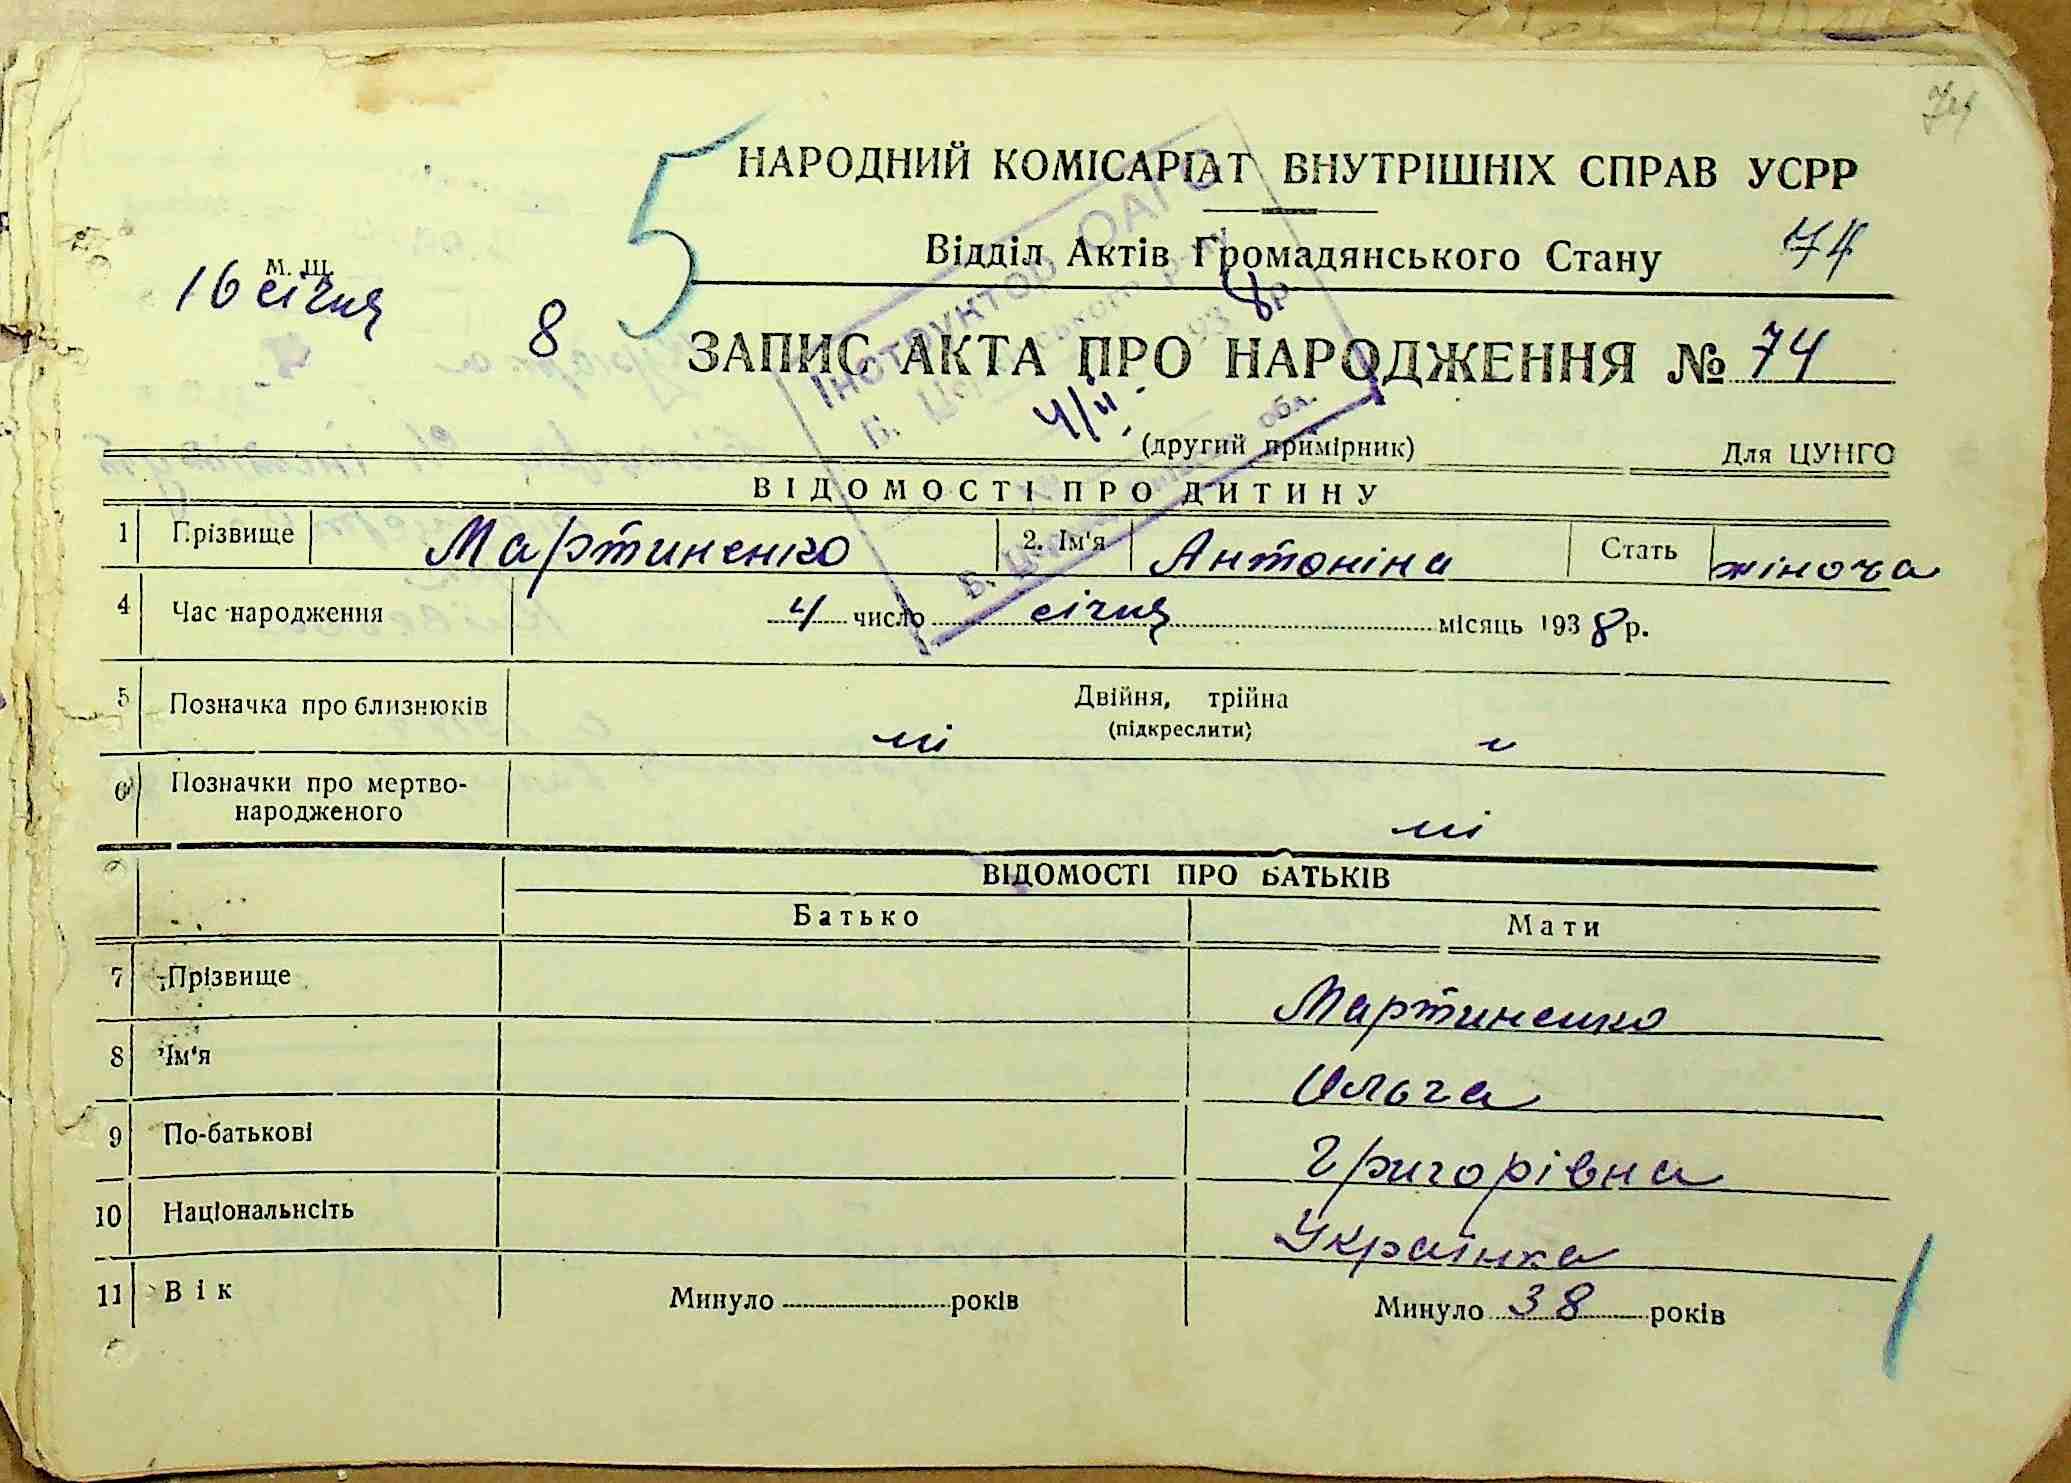 74
НАРОДНИЙ КОМІСАРІАТ ВНУТРІШНІХ СПРАВ УСРР
5
Відділ Актів Громадянського Стану 74
М. Ш.
16 січня 8
ЗАПИС АКТА ПРО НАРОДЖЕННЯ № 74
ІНСТРУКТОР ОАГС
Б. Цер ського р-ну
4/II 193 8 р.
обл.
(другий примірник) Для ЦУНГО
ВІДОМОСТІ ПРО ДИТИНУ
1 Прізвище Мартиненко 2. Ім'я Антоніна Стать жіноча
4 Час народження 4 число січня місяць 1938 р.
5 Позначка про близнюків Двійня, трійна
(підкреслити)
ні "
6 Позначки про мертво-
народженого ні
ВІДОМОСТІ ПРО БАТЬКІВ
Батько Мати
7 Прізвище Мартиненко
8 Ім'я Ольга
9 По-батькові Григорівна
10 Національнсіть Українка
11 Вік Минуло років Минуло 38 років
1